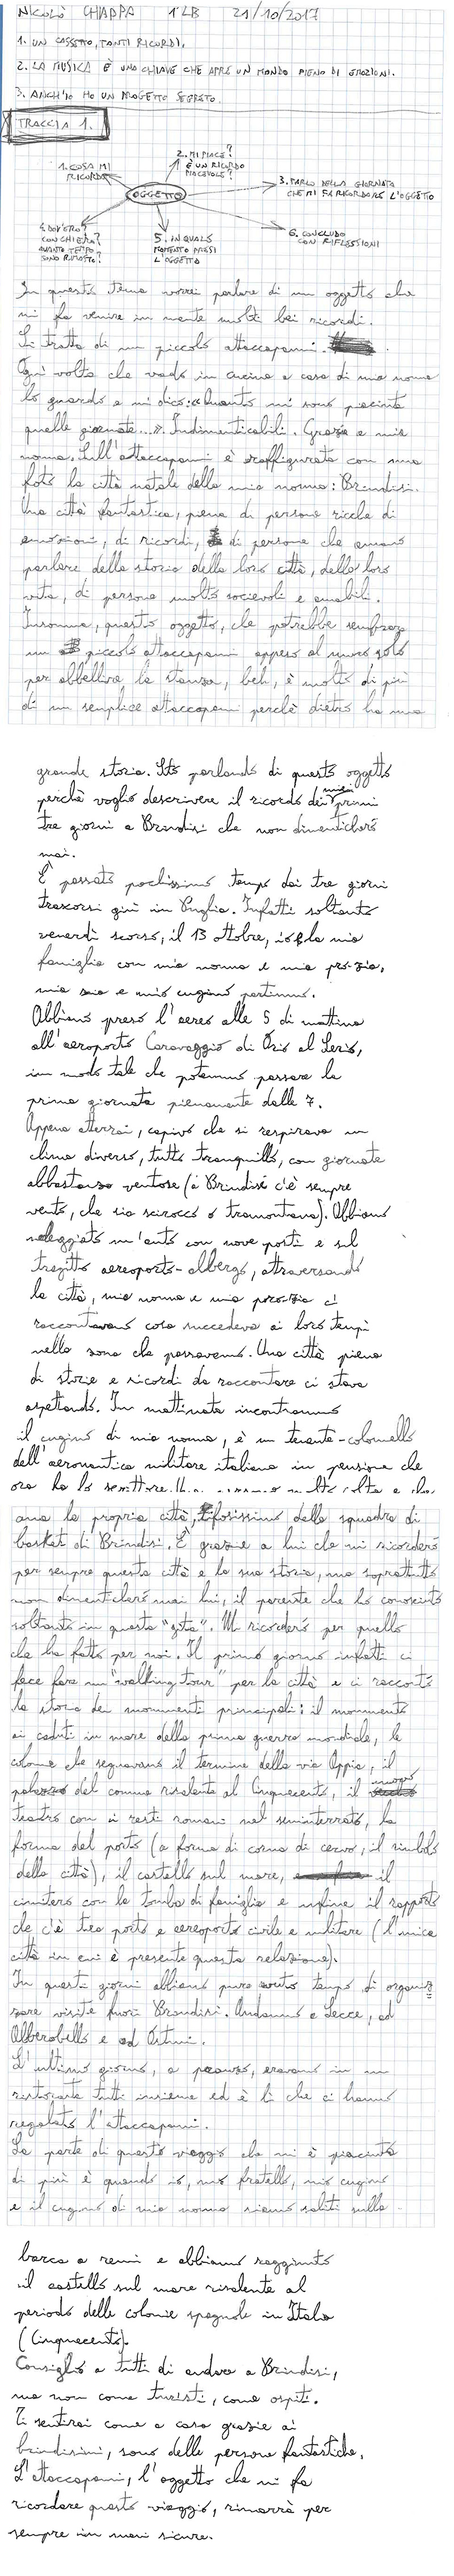 NICOLÒ CHIAPPA 1ªLB 21/10/2017
1. UN CASSETTO, TANTI RICORDI.
2. LA MUSICA È UNA CHIAVE CHE APRE UN MONDO PIENO DI EMOZIONI.
3. ANCH'IO HO UN PROGETTO SEGRETO.
TRACCIA 1.
1. COSA MI RICORDA
2. MI PIACE? È UN RICORDO PIACEVOLE?
3. PARLO DELLA GIORNATA CHE MI FA RICORDARE L'OGGETTO
OGGETTO
4. DOV'ERO? CON CHI ERO? QUANTO TEMPO SONO RIMASTO?
5. IN QUALE MOMENTO PRESI L'OGGETTO
6. CONCLUDO CON RIFLESSIONI
In questo tema vorrei parlare di un oggetto che
mi fa venire in mente molti bei ricordi.
Si tratta di un piccolo attaccapanni.
Ogni volta che vado in cucina a casa di mia nonna
lo guardo e mi dico: «Quanto mi sono piaciute
quelle giornate...». Indimenticabili. Grazie a mia
nonna. Sull'attaccapanni è raffigurata con una
foto la città natale della mia nonna: Brindisi.
Una città fantastica, piena di persone ricche di
emozioni, di ricordi, di persone che amano
parlare della storia della loro città, della loro
vita, di persone molto socievoli e amabili.
Insomma, questo oggetto, che potrebbe sembrare
un piccolo attaccapanni appeso al muro solo
per abbellire la stanza, beh, è molto di più
di un semplice attaccapanni perchè dietro ha una
grande storia. Sto parlando di questo oggetto
perchè voglio descrivere il ricordo dei miei primi
tre giorni a Brindisi che non dimenticherò
mai.
È passato pochissimo tempo dai tre giorni
trascorsi giù in Puglia. Infatti soltanto
venerdì scorso, il 13 ottobre, io e la mia
famiglia con mia nonna e mia pro-zia,
mia zia e mio cugino partimmo.
Abbiamo preso l'aereo alle 5 di mattina
all'aeroporto Caravaggio di Orio al Serio,
in modo tale che potemmo passare la
prima giornata pienamente dalle 7.
Appena atterrai, capivo che si respirava un
clima diverso, tutto tranquillo, con giornate
abbastanza ventose (a Brindisi c'è sempre
vento, che sia scirocco o tramontana). Abbiamo
noleggiato un'auto con nove posti e sul
tragitto aereoporto-albergo, attraversando
la città, mia nonna e mia pro-zia ci
raccontavano cosa succedeva ai loro tempi
nella zona che passavamo. Una città piena
di storie e ricordi da raccontare ci stava
aspettando. In mattinata incontrammo
il cugino di mia nonna, è un tenente-colonnello
dell'aeronautica militare italiana in pensione che
ora fa lo scrittore. Una persona molto colta e che
ama la propria città, tifosissimo della squadra di
basket di Brindisi. È grazie a lui che mi ricorderò
per sempre questa città e la sua storia, ma soprattutto
non dimenticherò mai lui, il parente che ho conosciuto
soltanto in questa "gita". Mi ricorderò per quello
che ha fatto per noi. Il primo giorno infatti ci
fece fare un "walking tour" per la città e ci raccontò
la storia dei monumenti principali: il monumento
ai caduti in mare della prima guerra mondiale, le
colonne che segnavano il termine della via Appia, il
palazzo del comune risalente al Cinquecento, il nuovo
teatro con i resti romani nel seminterrato, la
forma del porto (a forma di corna di cervo, il simbolo
della città), il castello sul mare, il
cimitero con la tomba di famiglia e infine il rapporto
che c'è tra porto e aereoporto civile e militare (l'unica
città in cui è presente questa relazione).
In questi giorni abbiamo pure avuto tempo di organiz=
zare visite fuori Brindisi. Andammo a Lecce, ad
Alberobello e ad Ostuni.
L'ultimo giorno, a pranzo, eravamo in un
ristorante tutti insieme ed è lì che ci hanno
regalato l'attaccapanni.
La parte di questo viaggio che mi è piaciuta
di più è quando io, mio fratello, mio cugino
e il cugino di mia nonna siamo saliti sulla
barca a remi e abbiamo raggiunto
il castello sul mare risalente al
periodo delle colonie spagnole in Italia
(Cinquecento).
Consiglio a tutti di andare a Brindisi,
ma non come turisti, come ospiti.
Ti sentirai come a casa grazie ai
brindisini, sono delle persone fantastiche.
L'attaccapanni, l'oggetto che mi fa
ricordare questo viaggio, rimarrà per
sempre in mani sicure.